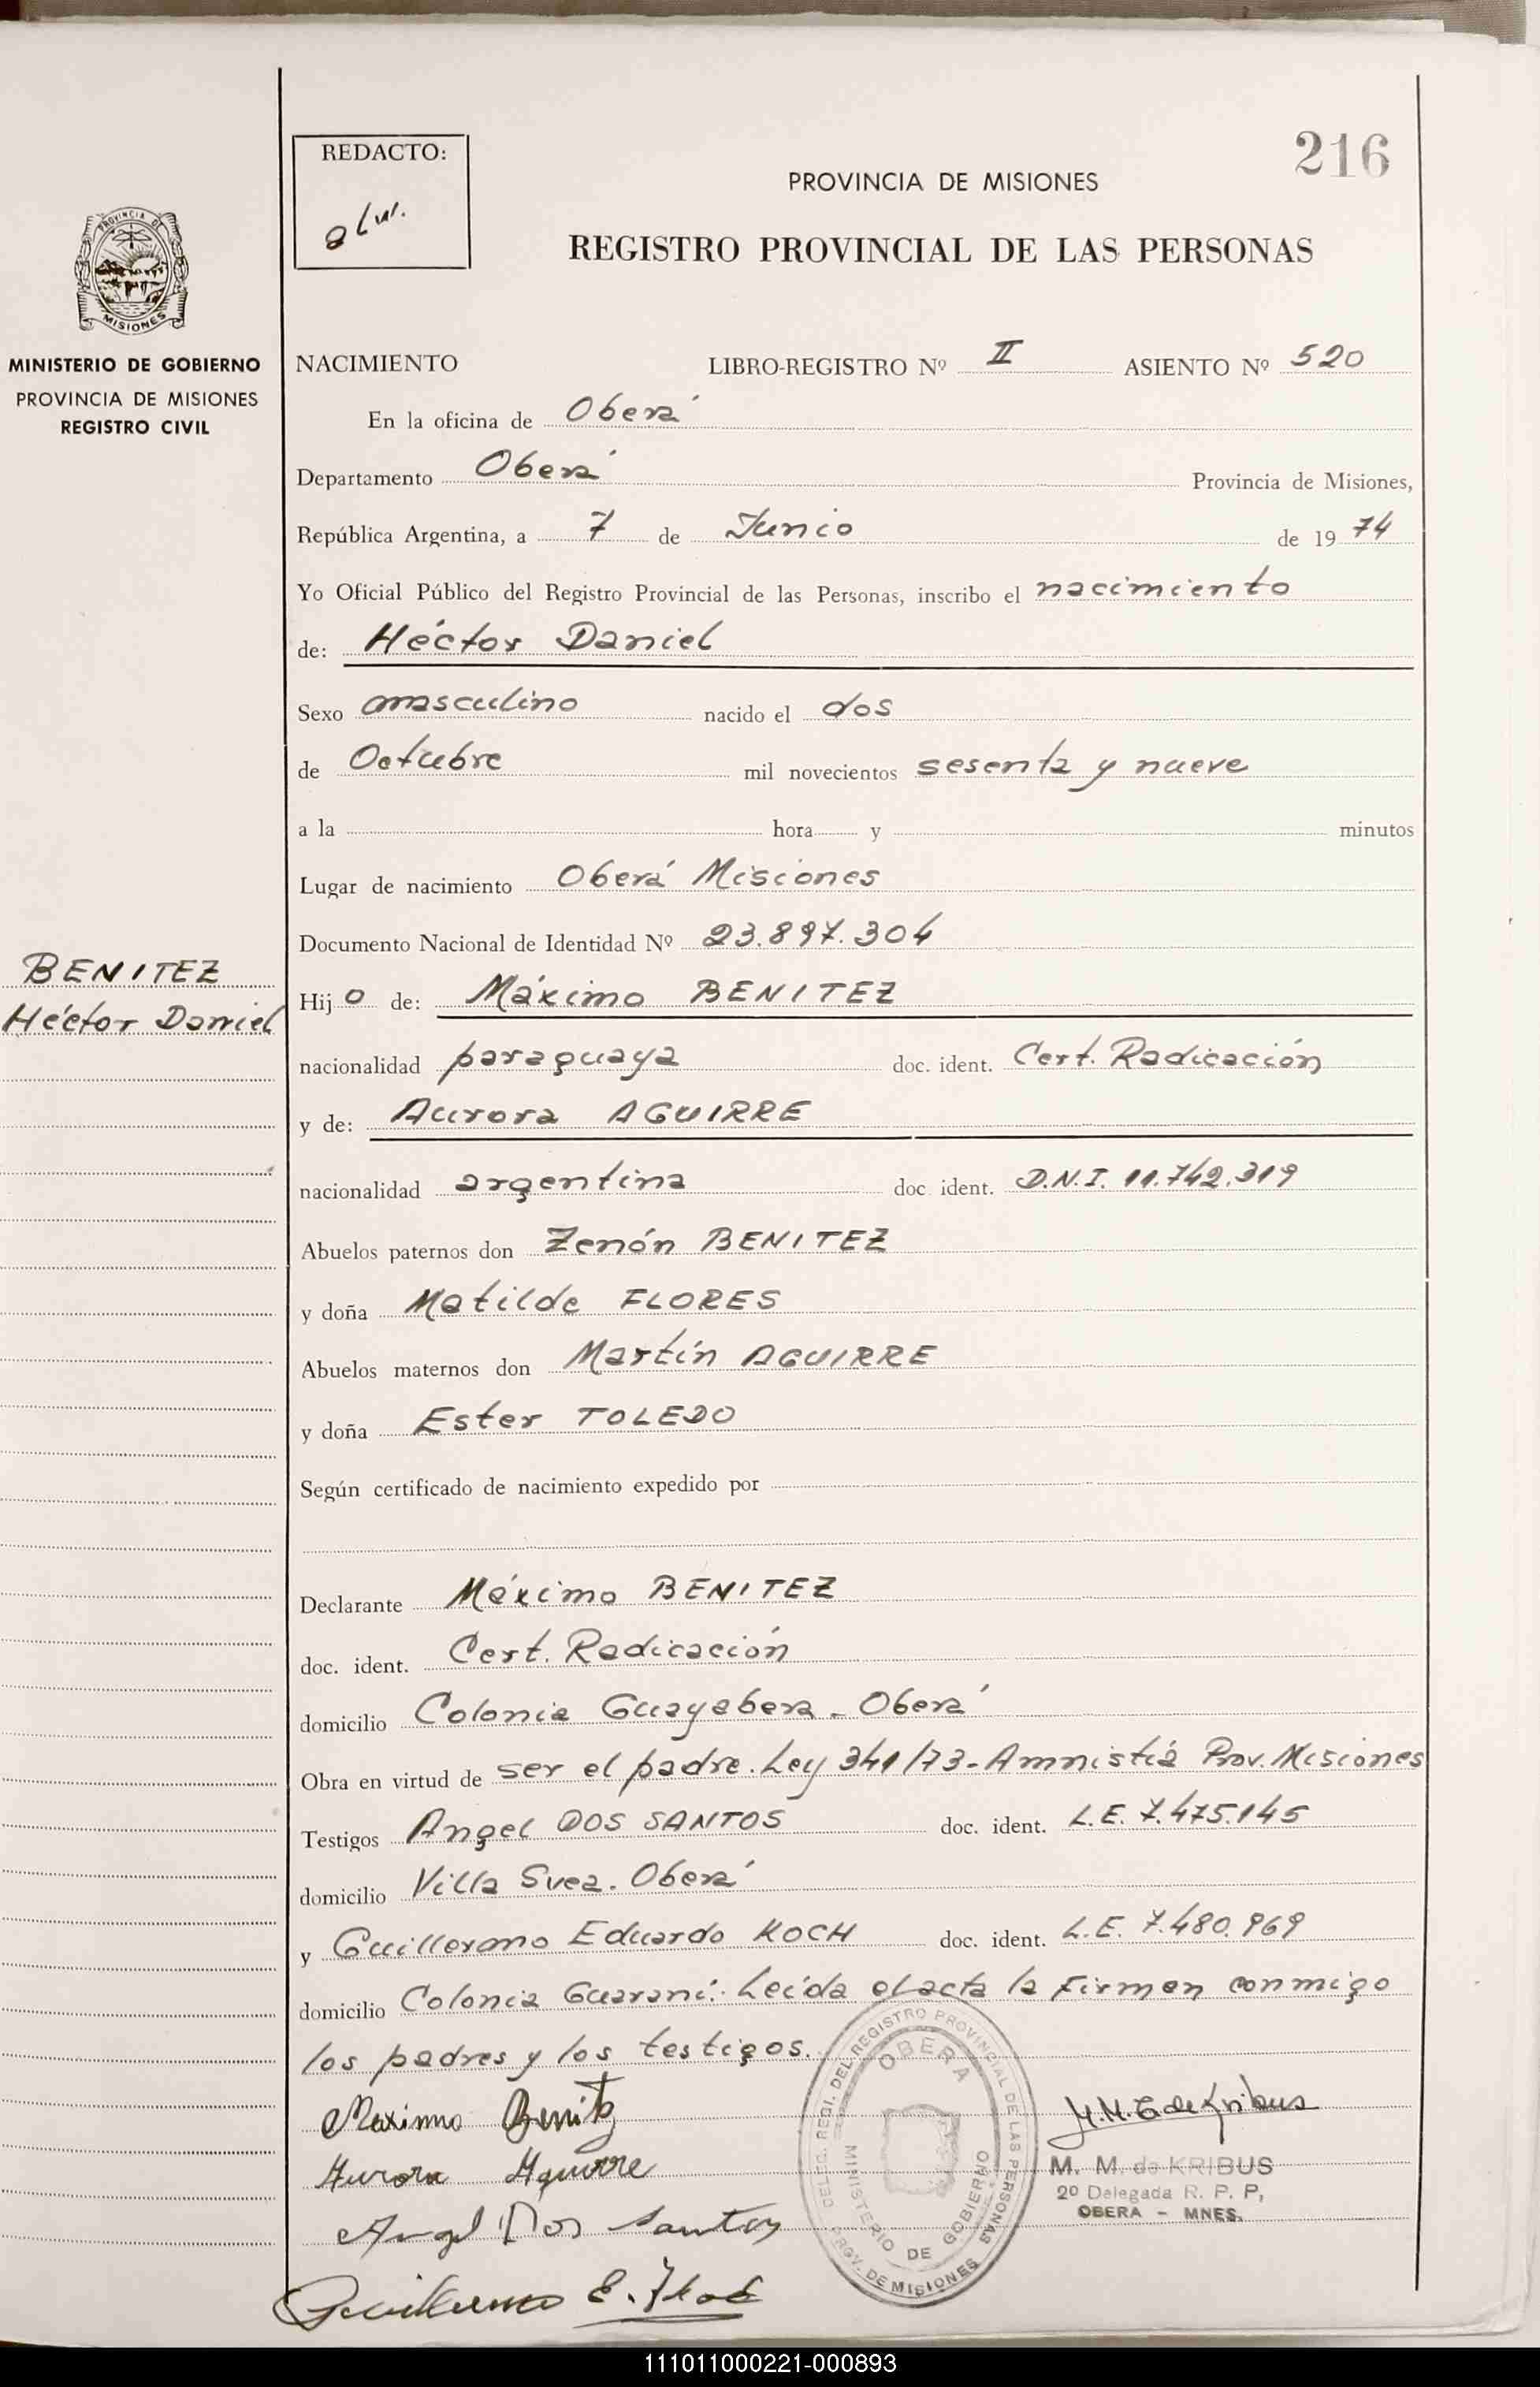 216
REDACTO:
PROVINCIA DE MISIONES
REGISTRO PROVINCIAL DE LAS PERSONAS
PROVINCIA DE
MISIONES
MINISTERIO DE GOBIERNO
PROVINCIA DE MISIONES
REGISTRO CIVIL
NACIMIENTO LIBRO-REGISTRO Nº II ASIENTO Nº 520
En la oficina de Oberá
Departamento Oberá Provincia de Misiones,
República Argentina, a 7 de Junio de 1974
Yo Oficial Público del Registro Provincial de las Personas, inscribo el nacimiento
de: Héctor Daniel
Sexo masculino nacido el dos
de Octubre mil novecientos sesenta y nueve
a la hora y minutos
Lugar de nacimiento Oberá Misiones
Documento Nacional de Identidad Nº 23.897.304
BENITEZ
Héctor Daniel
Hijo de: Máximo BENITEZ
nacionalidad paraguaya doc. ident. Cert. Radicación
y de: Aurora AGUIRRE
nacionalidad argentina doc ident. D.N.I. 11.742.319
Abuelos paternos don Zenón BENITEZ
y doña Matilde FLORES
Abuelos maternos don Martín AGUIRRE
y doña Ester TOLEDO
Según certificado de nacimiento expedido por
Declarante Máximo BENITEZ
doc. ident. Cert. Radicación
domicilio Colonia Guayabera - Oberá
Obra en virtud de ser el padre. Ley 341/73 - Amnistía Prov. Misiones
Testigos Angel DOS SANTOS doc. ident. L.E. 7.475.145
domicilio Villa Svea. Oberá
y Guillermo Eduardo KOCH doc. ident. L.E. 7.480.969
domicilio Colonia Guaraní. Leída el acta la firman conmigo
los padres y los testigos.
Maximo Benitz
Aurora Aguirre
Angel Dos Santos
Guillermo E. Koch
DELEG. REGI. DEL REGISTRO PROVINCIAL DE LAS PERSONAS
OBERA
MINISTERIO DE GOBIERNO
DE MISIONES
M. M. de KRIBUS
2º Delegada R. P. P,
OBERA - MNES.
111011000221-000893